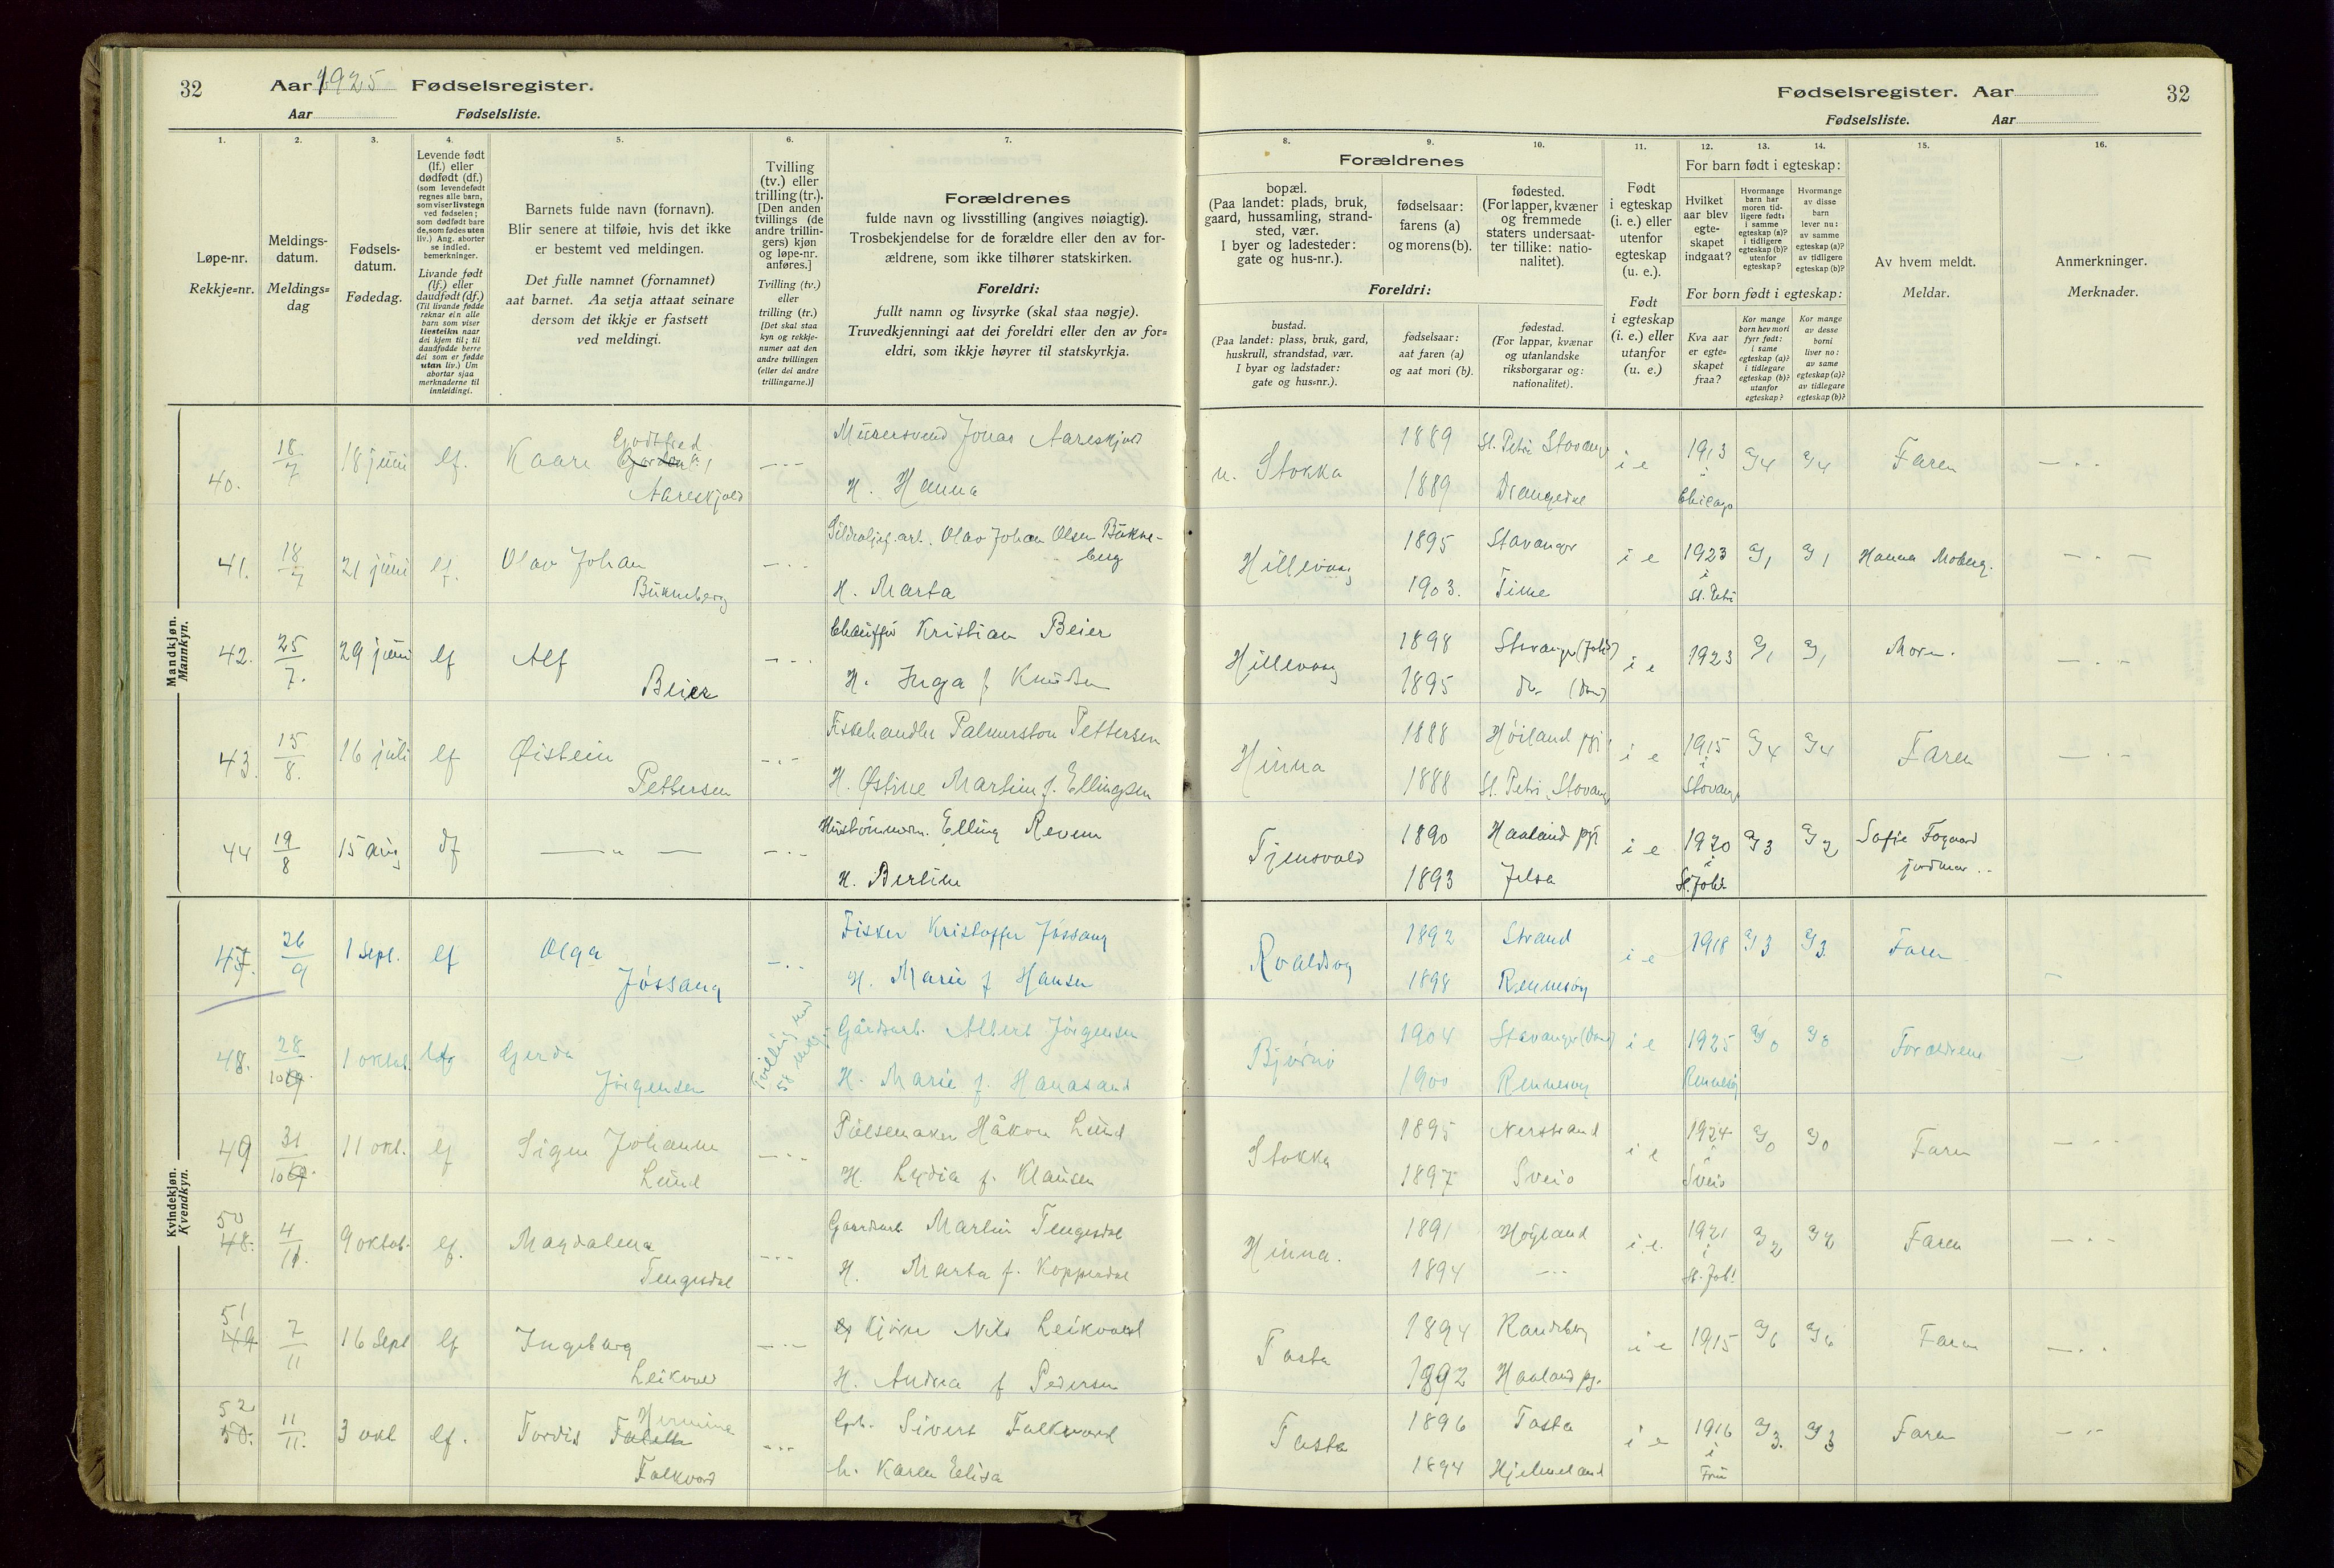 32 Aar 1925 Fødselsregister.
Aar Fødselsliste.
Fødselsregister. Aar 32
Fødselsliste. Aar
1. 2. 3. 4. 5. 6. 7. 8. 9. 10. 11. 12. 13. 14. 15. 16.
Løpe-nr.
Rekkje=nr.
Meldings-
datum.
Meldings=
dag
Fødsels-
datum.
Fødedag.
Levende født
(lf.) eller
dødfødt (df.)
(som levendefødt
regnes alle barn,
som viser livstegn
ved fødselen;
som dødfødt bare
de, som fødes uten
liv.) Ang. aborter
se indled.
bemerkninger.
Livande født
(lf.) eller
daudfødt (df.)
(Til livande fødde
reknar ein alle
barn som viser
livsteikn naar
dei kjem til; til
daudfødde berre
dei som er fødde
utan liv.) Um
abortar sjaa
merknaderne til
innleidingi.
Barnets fulde navn (fornavn).
Blir senere at tilføie, hvis det ikke
er bestemt ved meldingen.
Det fulle namnet (fornamnet)
aat barnet. Aa setja attaat seinare
dersom det ikkje er fastsett
ved meldingi.
Tvilling
(tv.) eller
trilling (tr.).
[Den anden
tvillings (de
andre trillin-
gers) kjøn
og løpe-nr.
anføres.]
Tvilling (tv.)
eller
trilling (tr.)
[Det skal staa
kyn og rekkje-
numer aat den
andre tvillingen
(eller dei andre
trillingarne.)]
Forældrenes
fulde navn og livsstilling (angives nøiagtig).
Trosbekjendelse for de forældre eller den av for-
ældrene, som ikke tilhører statskirken.
Foreldri:
fullt namn og livsyrke (skal staa nøgje).
Truvedkjenningi aat dei foreldri eller den av for=
eldri, som ikkje høyrer til statskyrkja.
Forældrenes
bopæl.
(Paa landet: plads, bruk,
gaard, hussamling, strand-
sted, vær.
I byer og ladesteder:
gate og hus-nr.).
fødselsaar:
farens (a)
og morens (b).
fødested.
(For lapper, kvæner
og fremmede
staters undersaat-
ter tillike: natio-
nalitet).
Foreldri:
bustad.
(Paa landet: plass, bruk, gard,
huskrull, strandstad, vær.
I byar og ladstader:
gate og hus=nr.).
fødselsaar:
aat faren (a)
og aat mori (b).
fødestad.
(For lappar, kvænar
og utanlandske
riksborgarar og:
nationalitet).
Født
i egteskap
(i. e.) eller
utenfor
egteskap
(u. e.).
Født
i egteskap
(i. e.) eller
utanfor
(u. e.)
For barn født i egteskap:
Hvilket
aar blev
egte-
skapet
indgaat?
Hvormange
barn har
moren tid-
ligere født:
i samme
egteskap (a)?
i tidligere
egteskap (b)?
utenfor
egteskap?
Hvormange
av disse
barn
lever nu:
av samme
egteskap (a)?
av tidligere
egteskap (b)?
For born født i egteskap:
Kva aar
er egte-
skapet
fraa?
Kor mange
born hev mori
fyrr født:
i same
egteskap (a)?
i tidlegare
egteskap (b)?
utanfor
egteskap?
Kor mange
av desse
borni
liver no:
av same
egteskap (a)?
av tidlegare
egteskap (b)?
Av hvem meldt.
Meldar.
Anmerkninger.
Merknader.
Mandkjøn.
Mannkyn.
40. 18/7 18 juni lf. Kaare Godtfred Aareskjold
Jonas Aareskjold
H. Hanna
n. Stokka 1889 St. Petri Stavang i e 1913 i Chicago a/4 a/4 Faren
1889 Drangedal
41. 18/7 21 juni lf. Olav Johan Bükneberg
Olav Johan Olsen Bükne-
berg
H. Marta
Hillevaag 1895 Stavanger i e 1923 i St. Petri a/1 a/1 Hanna Moberg.
1903. Time
42. 25/7. 29 juni lf Alf Beier
Chauffør Kristian Beier
H. Inga f Knudsen
Hillevaag 1898 Stavanger (Joh's) i e 1923 a/1 a/1 Moren.
1895 do (dom)
43. 15/8. 16 juli lf Øistein Pettersen
Fiskehandler Palmerston Pettersen
H. Østine Martine f. Ellingsen
Hinna 1888 Høiland pgj i e 1915 i Stavang a/4 a/4 Faren
1888 St. Petri, Stavang
44 19/8 15 aug df
Elling Revem
H. Berline
Tjensvold 1890 Haaland pgj i e 1920 i St. Joh's a/3 a/2 Sofie Fogaard
jordmor
1893 Jelsa
Kvindekjøn.
Kvendkyn.
47. 26/9 1 Sept. lf Olga Jóssang
Fisker Kristoffer Jóssang
H. Marie f Hansen
Roaldsøy 1892 Strand i e 1918 a/3 a/3. Faren
1898 Rennesøy
48. 28/10 1 oktob. lf Gerda Jörgensen
Tvilling med
Gårdsarb. Albert Jörgensen
H. Marie f. Hanasand
Bjørnö 1904 Stavanger (Dom) i e 1925 Rennesøy a/0 a/0 Forældrene
1900 Rennesøy
49 31/10 11 okt. lf Signe Johanne Lund
Pølsemaker Håkon Lund
H. Lydia f. Klausen
Stokka 1895 Nerstrand i e 1924 i Sveio a/0 a/0 Faren
1897 Sveio
50 48. 4/11. 9 oktob. lf. Magdalena Tengesdal
Gaardsarb. Martin Tengesdal
H. Marta f. Koppersdal
Hinna. 1891 Høyland i. e. 1921 i St. Joh! a/2 a/2 Faren
1894
51 49 7/11 16 Sept lf Ingeborg Leikvold
Nils Leikvold
H. Andrea f Pedersen
Tasta 1894 i e 1915 a/6 a/6 Faren
1892 Haaland pg.
52 50. 11/11. 3 okt lf. Tordis Hermine Falkvard
Sivert Falkvard
h. Karen Elisa
Tasta 1896 Tasta i e 1916 i Frue a/3. a/3 Faren
1894 Hjelmeland